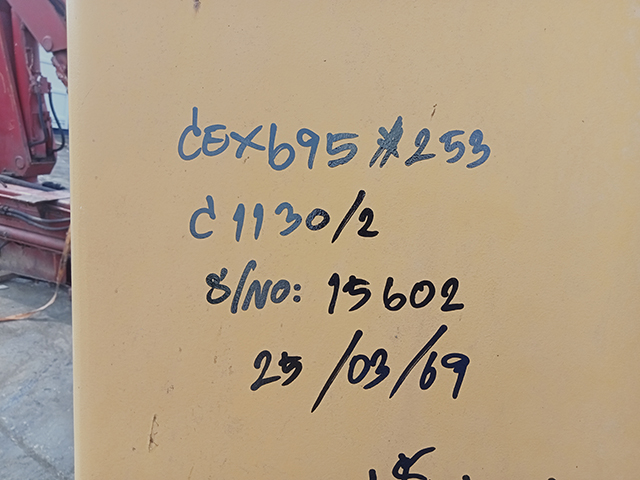 CEX695*253
C1130/2
S/NO: 15602
25/03/69